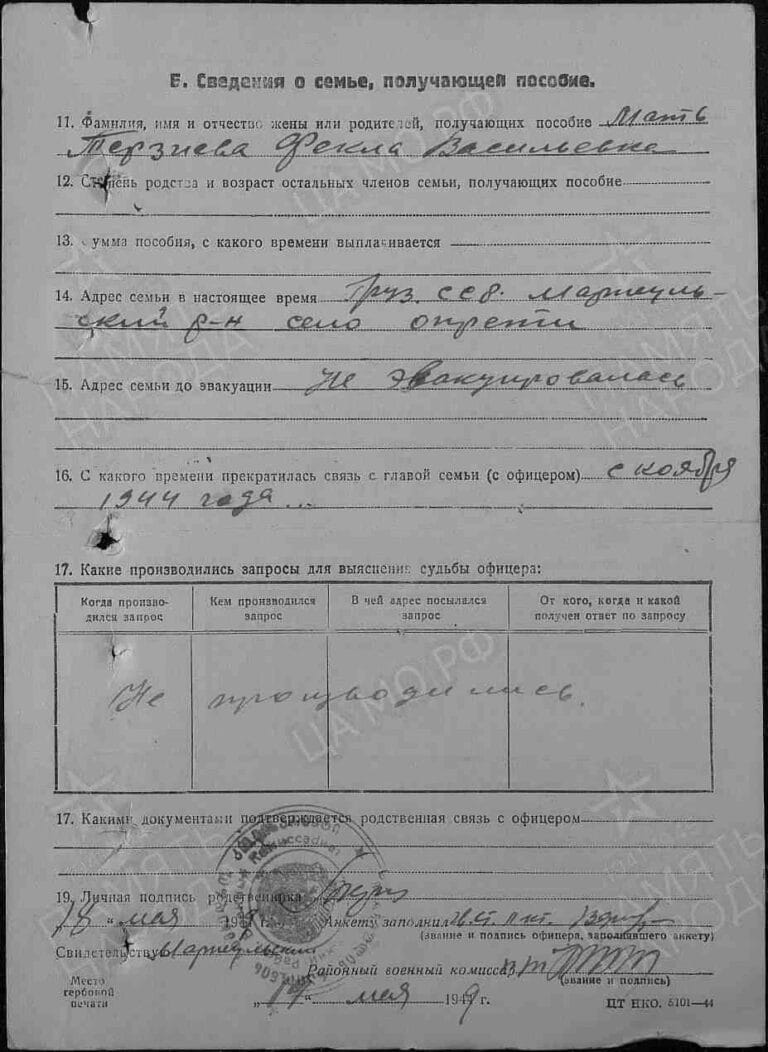 Б. Сведения о семье, получающей пособие.
11. Фамилия, имя и отчество жены или родителей, получающих пособие Мать
Терзиева Фекла Васильевна
12. Степень родства и возраст остальных членов семьи, получающих пособие
13. Сумма пособия, с какого времени выплачивается
14. Адрес семьи в настоящее время Груз. ССР. Марнеуль-
ский р-н село опрети
15. Адрес семьи до эвакуации Не эвакуировалась
16. С какого времени прекратилась связь с главой семьи (с офицером) с ноября
1944 года...
17. Какие производились запросы для выяснения судьбы офицера:
Когда произво-
дился запрос
Кем производился
запрос
В чей адрес посылался
запрос
От кого, когда и какой
получен ответ по запросу
Не производились.
17. Какими документами подтверждается родственная связь с офицером
19. Личная подпись родственника
18 " мая 194 г. Анкету заполнил
(звание и подпись офицера, заполнявшего анкету)
Свидетельствую Марнеульский
Районный военный комиссар
(звание и подпись)
Место
гербовой
печати
" мая 1949 г.
ЦТ НКО. 5101—44
ЦАМО.РФ
ПАМЯТЬ
НАРОДА